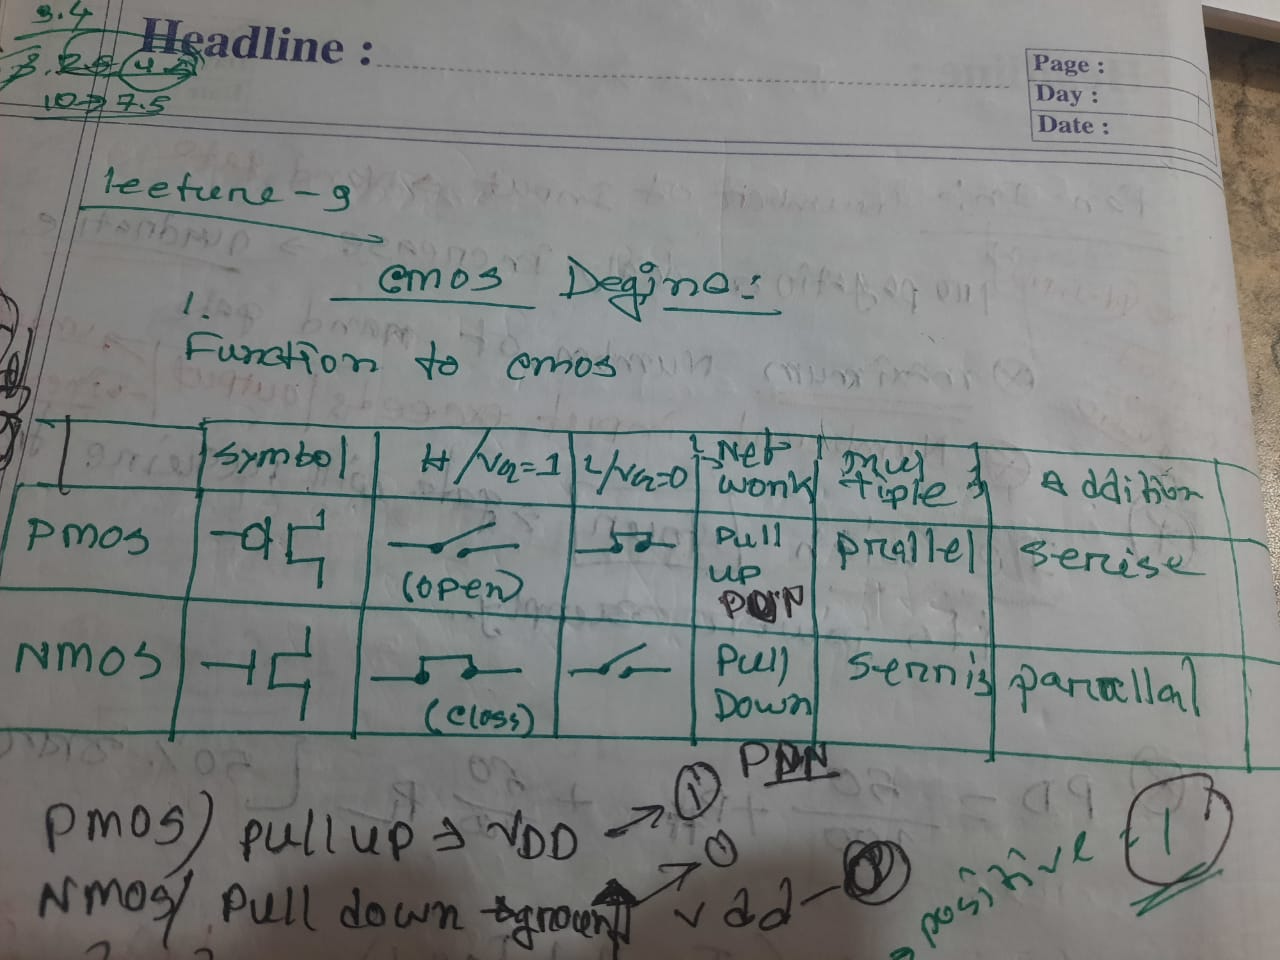 3.4
10→7.5
Headline :
Page :
Day :
Date :
Lecture - 9
cmos Degine:
1.
Function to cmos
Symbol H/VG=1 L/VG=0 Network multiple Addition
PMOS (open) Pull up PUN prallel serise
NMOS (Closs) Pull Down serris parallal
PDN
PMOS) pull up → VDD → 1
NMOS/ Pull down ground vdd
positive 1